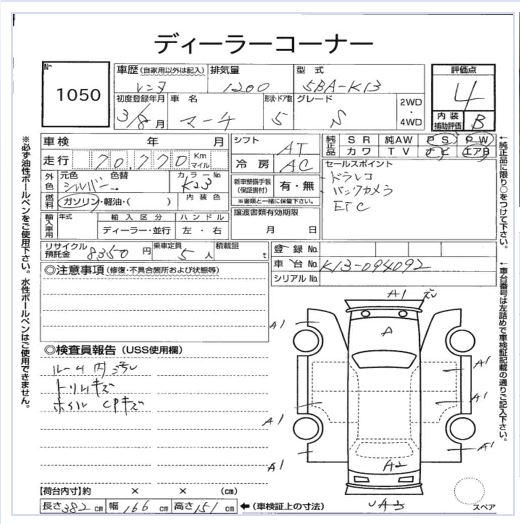 ディーラーコーナー
No.
1050
車歴 (自家用以外は記入) 排気量 型式 評価点
レンタ 1200 5BA-K13 4
初度登録年月 車名 形状・ドア数 グレード 2WD・4WD 内装補助評価 B
3/8月 マーチ 5 S
車検 年 月
シフト AT
純正品 SR 純AW PS PW
カワ TV ナビ エアB
走行 70,770 Km マイル
冷房 AC
セールスポイント
外色 元色 色替 カラーNo.
シルバー K23
ドラレコ
バックカメラ
ETC
燃料 ガソリン・軽油・( ) 内装色
新車整備手帳(保証書付) 有・無
※書類と一緒に保管下さい。
輸入車用 年式 輸入区分 ハンドル
ディーラー・並行 左・右
譲渡書類有効期限
月 日
リサイクル預託金 8350円 乗車定員 5人 積載量 t
登録No.
車台No. K13-094092
シリアルNo.
◎注意事項 (修復・不具合箇所および状態等)
◎検査員報告 (USS使用欄)
ルーム内汚れ
トリムキズ
ホイルCPキズ
A1
A
A1
A1
A1
A1
A1
A1
A2
スペア
【荷台内寸】約 × × (cm)
長さ 382 cm 幅 166 cm 高さ 151 cm ←(車検証上の寸法)
※必ず油性ボールペンをご使用下さい。水性ボールペンはご使用できません。
←純正品に限り○をつけて下さい。
←車台番号は左詰めで車検証記載の通りご記入下さい。